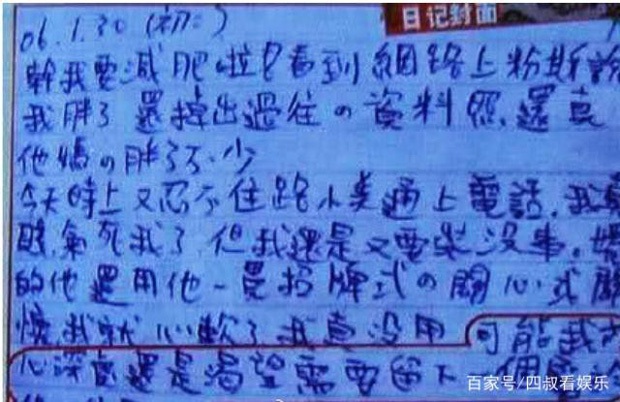 日记封面
06.1.30 (初二)
幹我要減肥啦!看到網路上粉斯說
我胖了 還掉出過往の資料照.還真
他媽の胖了不少
今天晚上又忍不住跟小美通上電話.我
氣死我了 但我還是又要裝沒事.
的他還用他一貫招牌式の關心 式關
懷 我就心軟了 我真没用 可能我
心深處還是渴望需要留下 個
百家号/四叔看娱乐